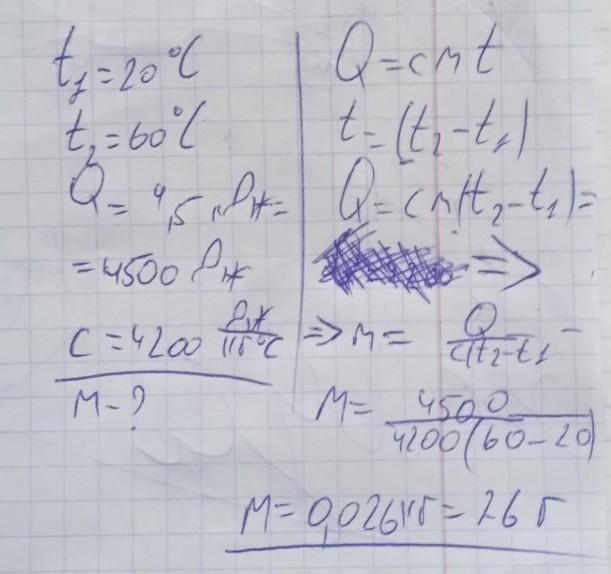 t₁=20°C
t₂=60°C
Q=4,5 кДж=
=4500 Дж
c=4200 Дж/кг°C
m-?
Q=cmt
t=(t₂-t₁)
Q=cm(t₂-t₁)=
=>
=> m= Q/c(t₂-t₁ -
m= 4500/4200(60-20)
m=0,026кг=26 г